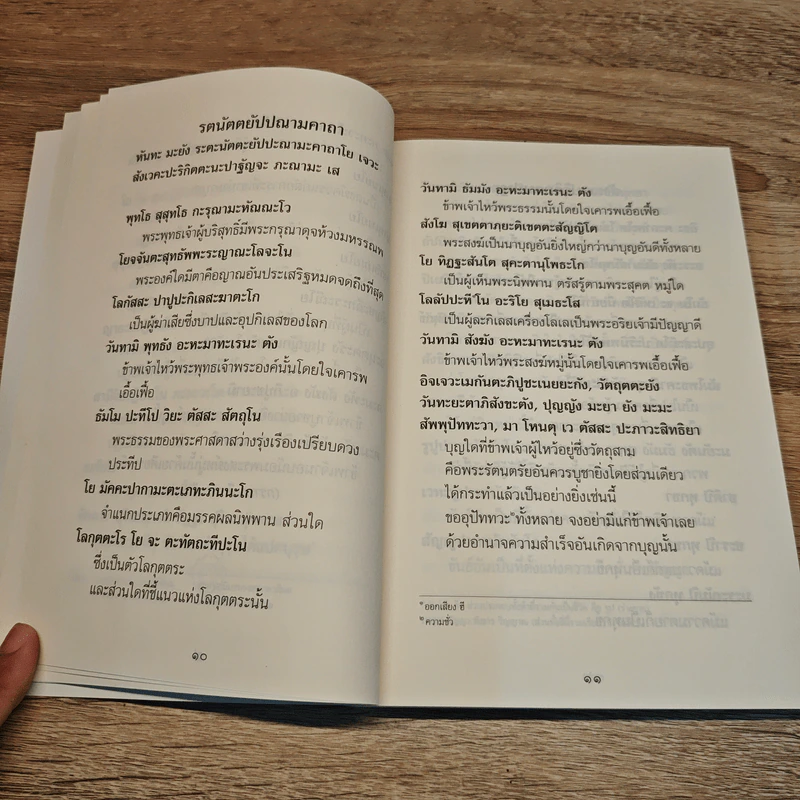 รตนัตตยัปปณามคาถา
หันทะ มะยัง ระตะนัตตะยัปปะณามะคาถาโย เจวะ
สังเวคะปะริกิตตะนะปาฐัญจะ ภะณามะ เส
พุทโธ สุสุทโธ กะรุณามะหัณณะโว
พระพุทธเจ้าผู้บริสุทธิ์มีพระกรุณาดุจห้วงมหรรณพ
โยจจันตะสุทธัพพะระญาณะโลจะโน
พระองค์ใดมีตาคือญาณอันประเสริฐหมดจดถึงที่สุด
โลกัสสะ ปาปูปะกิเลสะฆาตะโก
เป็นผู้ฆ่าเสียซึ่งบาปและอุปกิเลสของโลก
วันทามิ พุทธัง อะหะมาทะเรนะ ตัง
ข้าพเจ้าไหว้พระพุทธเจ้าพระองค์นั้นโดยใจเคารพ
เอื้อเฟื้อ
ธัมโม ปะทีโป วิยะ ตัสสะ สัตถุโน
พระธรรมของพระศาสดาสว่างรุ่งเรืองเปรียบดวง
ประทีป
โย มัคคะปากามะตะเภทะภินนะโก
จำแนกประเภทคือมรรคผลนิพพาน ส่วนใด
โลกุตตะโร โย จะ ตะทัตถะทีปะโน
ซึ่งเป็นตัวโลกุตตระ
และส่วนใดที่ชี้แนวแห่งโลกุตตระนั้น
๑๐
วันทามิ ธัมมัง อะหะมาทะเรนะ ตัง
ข้าพเจ้าไหว้พระธรรมนั้นโดยใจเคารพเอื้อเฟื้อ
สังโฆ สุเขตตาภฺยะติเขตตะสัญญิโต
พระสงฆ์เป็นนาบุญอันยิ่งใหญ่กว่านาบุญอันดีทั้งหลาย
โย ทิฏฐะสันโต สุคะตานุโพธะโก
เป็นผู้เห็นพระนิพพาน ตรัสรู้ตามพระสุคต หมู่ใด
โลลัปปะหี๑โน อะริโย สุเมธะโส
เป็นผู้ละกิเลสเครื่องโลเลเป็นพระอริยเจ้ามีปัญญาดี
วันทามิ สังฆัง อะหะมาทะเรนะ ตัง
ข้าพเจ้าไหว้พระสงฆ์หมู่นั้นโดยใจเคารพเอื้อเฟื้อ
อิจเจวะเมกันตะภิปูชะเนยยะกัง, วัตถุตตะยัง
วันทะยะตาภิสังขะตัง, ปุญญัง มะยา ยัง มะมะ
สัพพุปัททะวา, มา โหนตุ เว ตัสสะ ปะภาวะสิทธิยา
บุญใดที่ข้าพเจ้าผู้ไหว้อยู่ซึ่งวัตถุสาม
คือพระรัตนตรัยอันควรบูชายิ่งโดยส่วนเดียว
ได้กระทำแล้วเป็นอย่างยิ่งเช่นนี้
ขออุปัททวะ๒ทั้งหลาย จงอย่ามีแก่ข้าพเจ้าเลย
ด้วยอำนาจความสำเร็จอันเกิดจากบุญนั้น
๑ออกเสียง ฮี
๒ความชั่ว
๑๑